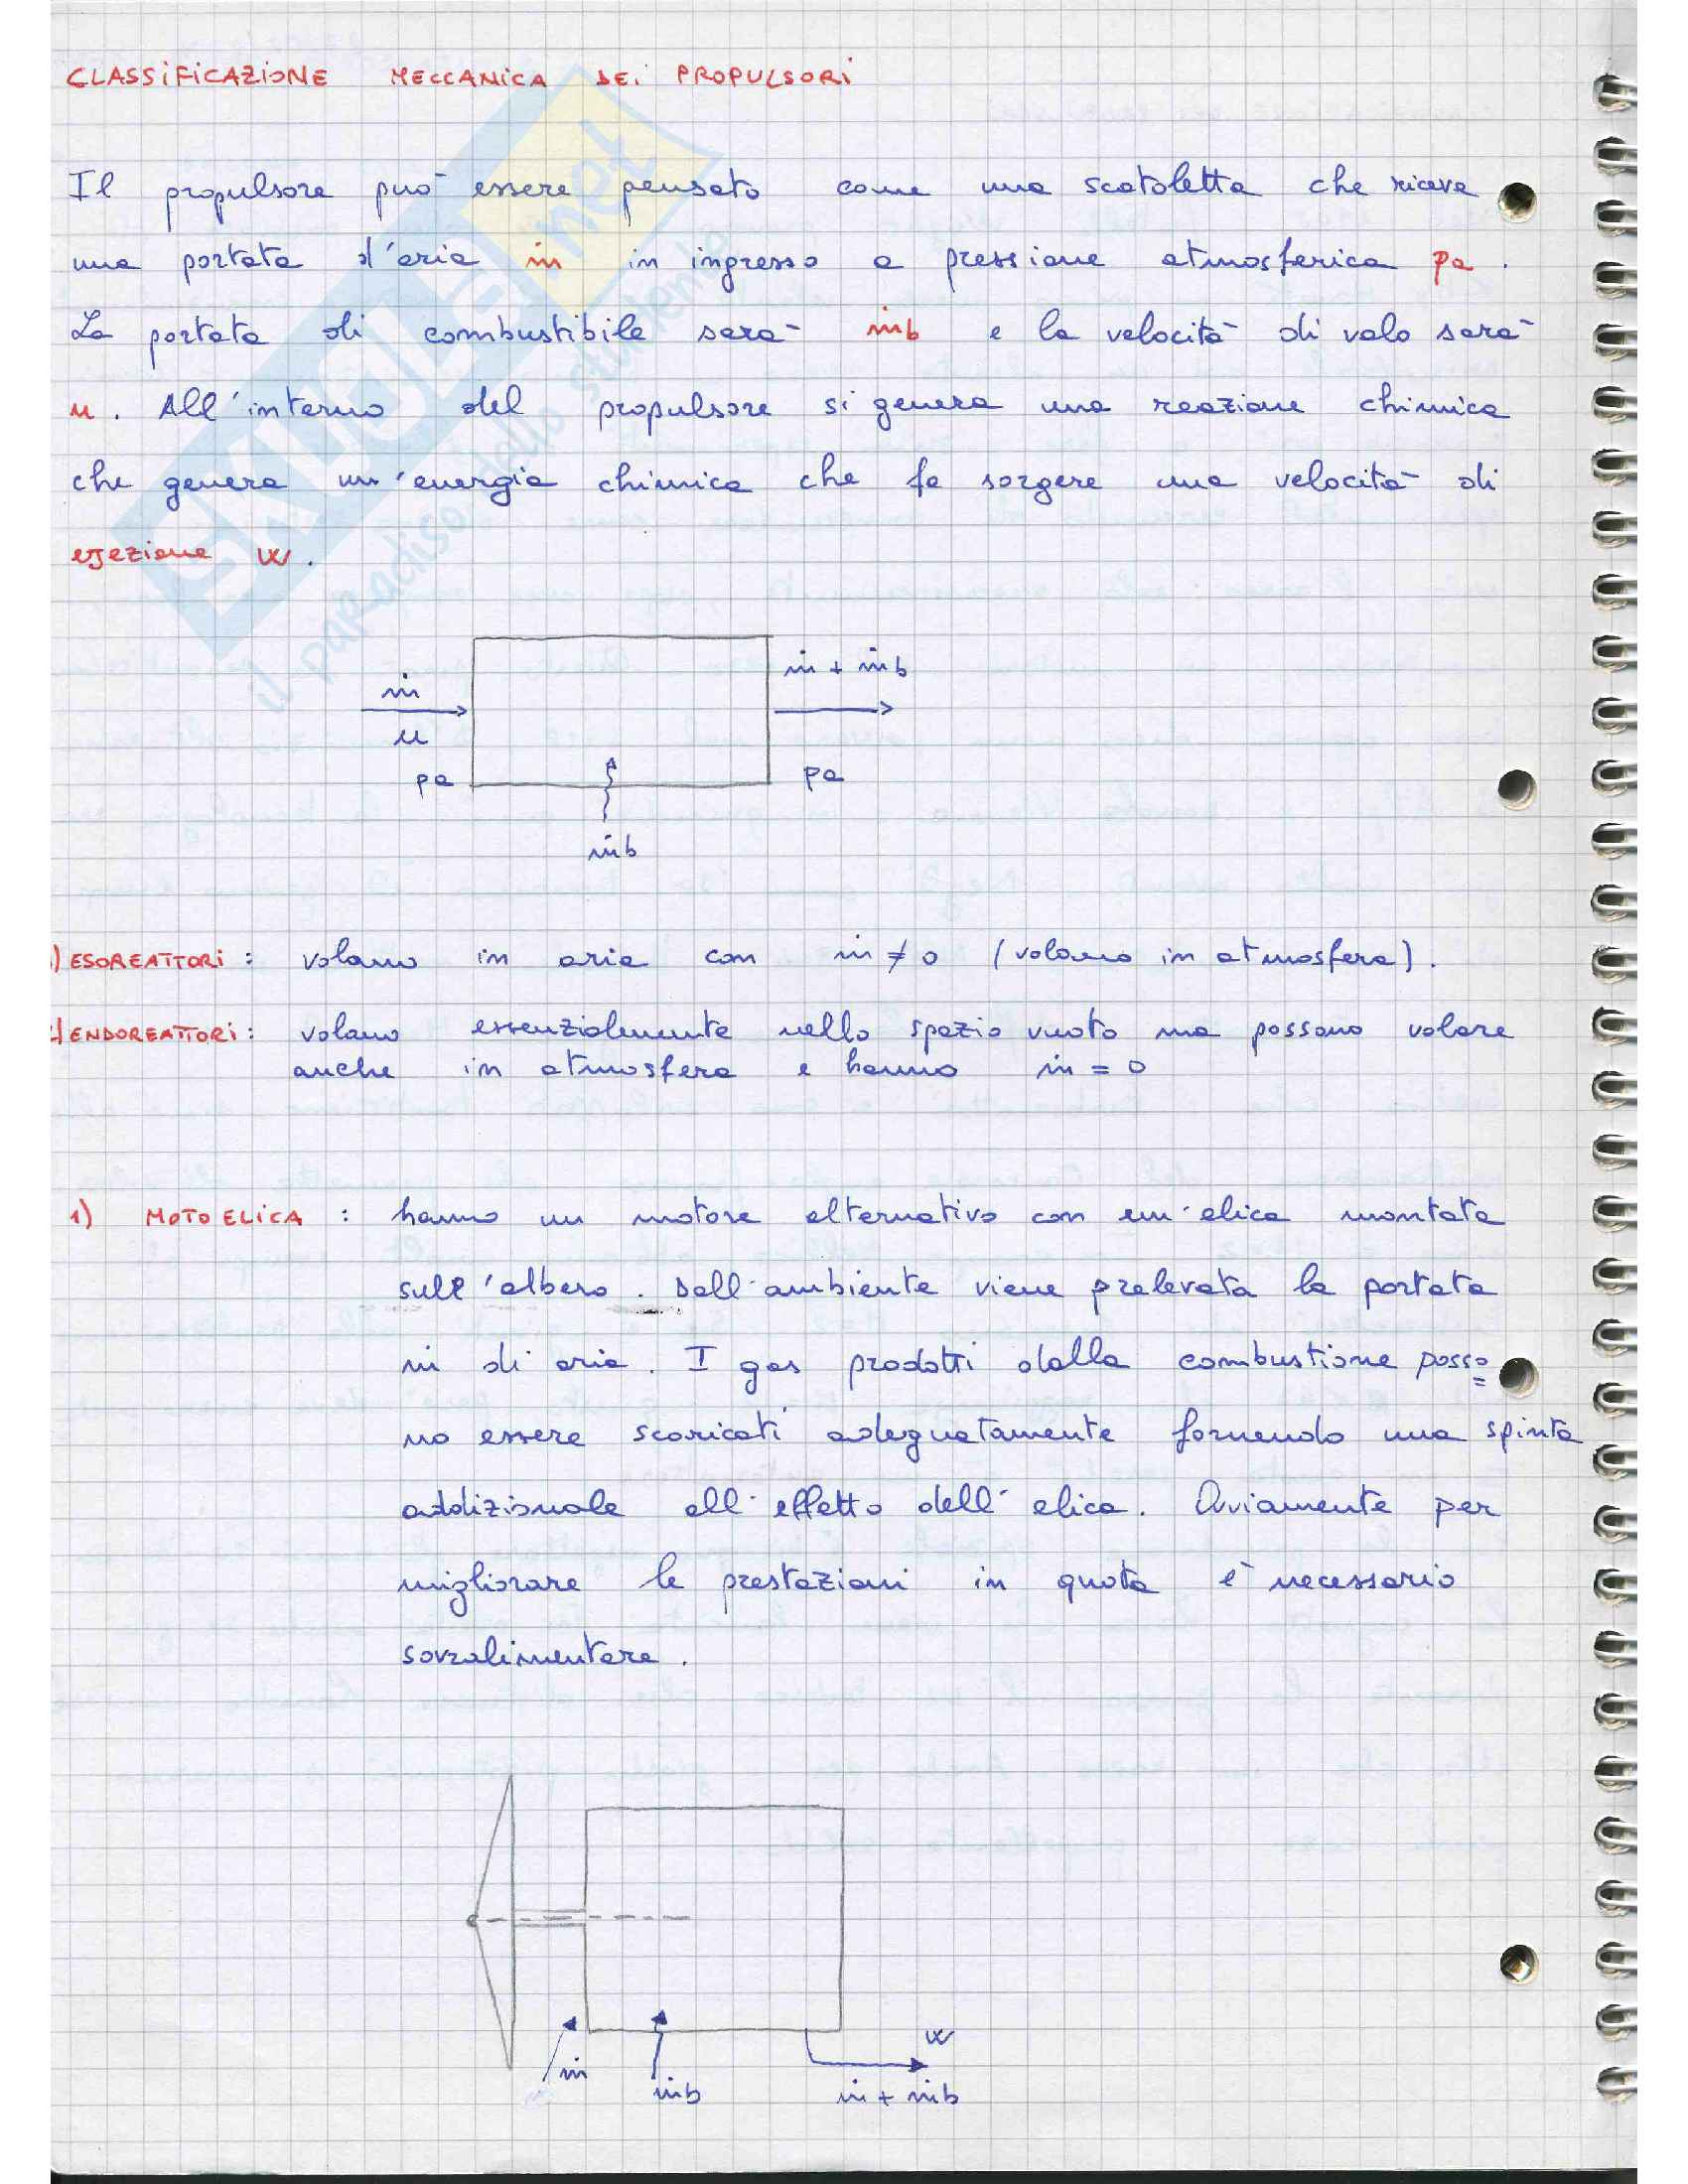 CLASSIFICAZIONE MECCANICA DEI PROPULSORI
Il propulsore può essere pensato come una scatoletta che riceve
una portata d'aria ṁ in ingresso a pressione atmosferica pa.
La portata di combustibile sarà ṁb e la velocità di volo sarà
u. All'interno del propulsore si genera una reazione chimica
che genera un'energia chimica che fa sorgere una velocità di
eiezione w.
ṁ
u
pa
ṁ + ṁb
pa
ṁb
) ESOREATTORI: volano in aria con ṁ ≠ 0 (volano in atmosfera).
) ENDOREATTORI: volano essenzialmente nello spazio vuoto ma possono volare
anche in atmosfera e hanno ṁ = 0
1) MOTOELICA: hanno un motore alternativo con un'elica montata
sull'albero. Dall'ambiente viene prelevata la portata
ṁ di aria. I gas prodotti dalla combustione posso=
no essere scaricati adeguatamente fornendo una spinta
addizionale all'effetto dell'elica. Ovviamente per
migliorare le prestazioni in quota è necessario
sovralimentare.
ṁ
ṁb
w
ṁ + ṁb
SKUOLA.net
il paradiso dello studente